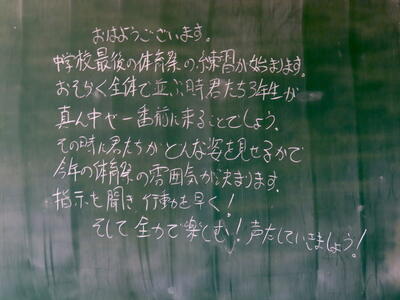 おはようございます。
中学校最後の体育祭の練習が始まります。
おそらく全体で並ぶ時君たち3年生が
真ん中や一番前に来ることでしょう。
その時に君たちがどんな姿を見せるかで
今年の体育祭の雰囲気が決まります。
指示を聞き行動を早く!
そして全力で楽しむ!声だしていきましょう!